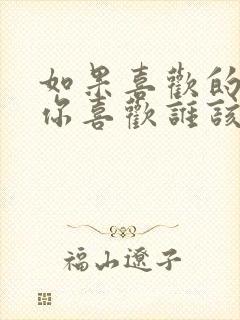 如果喜歡的
你喜歡誰該
福山遼子